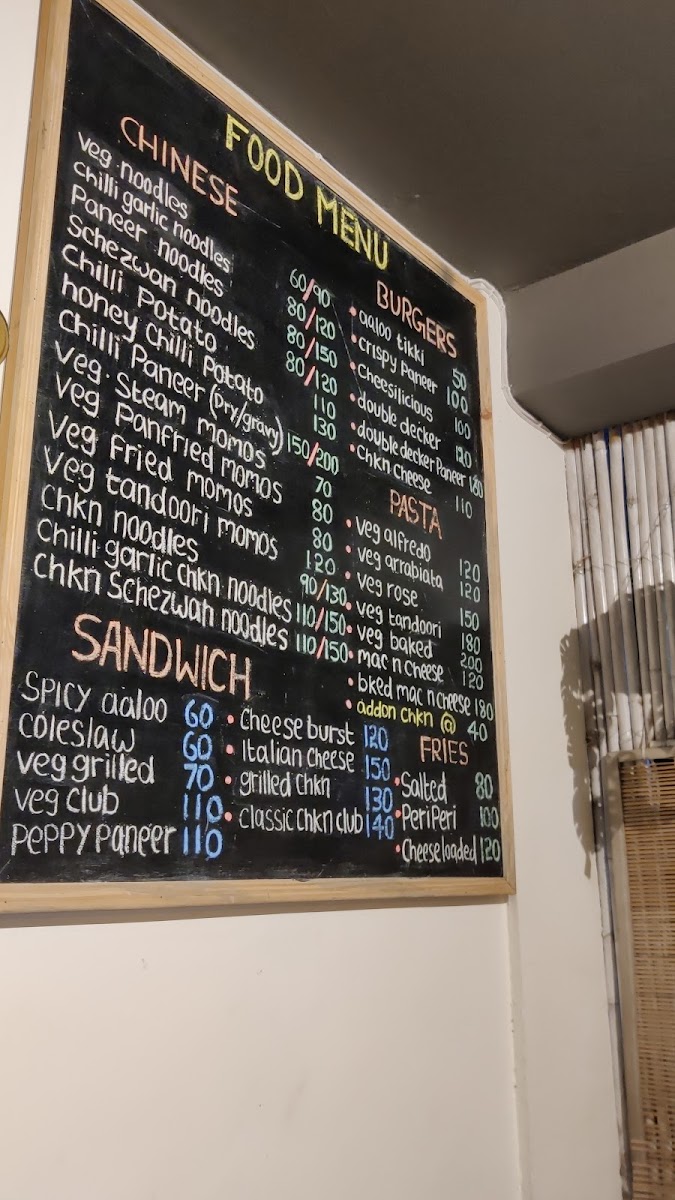 FOOD MENU
CHINESE
Veg noodles 60/90
Chilli garlic noodles 80/120
Paneer noodles 80/150
Schezwan noodles 80/120
Chilli Potato 110
honey Chilli Potato 130
Chilli Paneer (Dry/gravy) 150/200
Veg Steam momos 70
Veg Panfried momos 80
Veg fried momos 80
Veg tandoori momos 120
Chkn noodles 90/130
Chilli garlic chkn noodles 110/150
Chkn Schezwan noodles 110/150
SANDWICH
SPICY aaloo 60
coleslaw 60
veg grilled 70
veg club 110
PePPY Paneer 110
• Cheese burst 120
• Italian Cheese 150
• grilled chkn 130
• classic chkn club 140
BURGERS
• aaloo tikki 50
• Crispy Paneer 100
• Cheesilicious 100
• double decker
• double decker Paneer 180
• Chkn Cheese 110
PASTA
• veg alfredo 120
• veg arrabiata 120
• veg rose 150
• veg tandoori 180
• veg baked 200
• mac n cheese 120
• bked mac n cheese 180
• addon chkn @ 40
FRIES
• Salted 80
• Peri Peri 100
• Cheese loaded 120